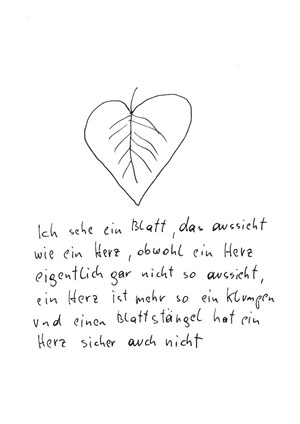 Ich sehe ein Blatt, das aussieht
wie ein Herz, obwohl ein Herz
eigentlich gar nicht so aussieht,
ein Herz ist mehr so ein Klumpen
und einen Blattstängel hat ein
Herz sicher auch nicht